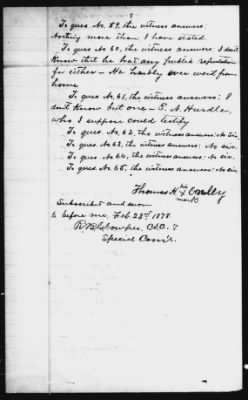 5
To ques No. 59, the witness answers:
Nothing more than I have stated.
To ques No 60, the witness answers: I don't
Know that he had any public reputation
for either - He hardly ever went from
home
To ques No. 61, the witness answers: I
don't Know but one - E. N. Hurdle,
who I suppose could testify
To ques, No. 62, the witness answers: No sir.
To ques No. 63, the witness answers: No sir.
To ques No. 64, the witness answers: No sir.
To ques, No. 65, the witness answers: No sir
Thomas H his X
mark
Subscribed and sworn
to before me, Feb. 23rd 1878
C.S.C. &
Special Com'r.